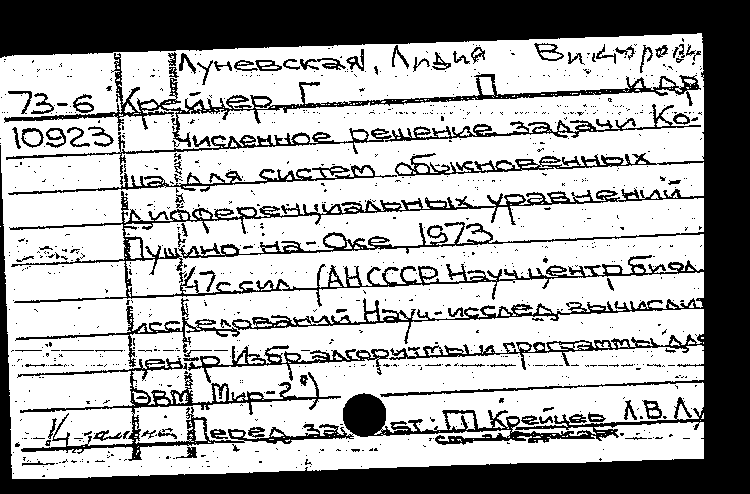 Луневская, Лидия Викторов
73-6 Крейцер, Г П и др
10923 Численное решение задачи Ко-
ши для систем обыкновенных
дифференциальных уравнений
Пущино-на-Оке, 1973
47с.сил. (АН СССР. Науч.центр биол.
исследований Науч.-исслед. вычислит
центр Избр алгоритмы и программы для
ЭВМ „Мир-2")
1/4 замена Перед за ат: Г.П Крейцер Л.В. Лу